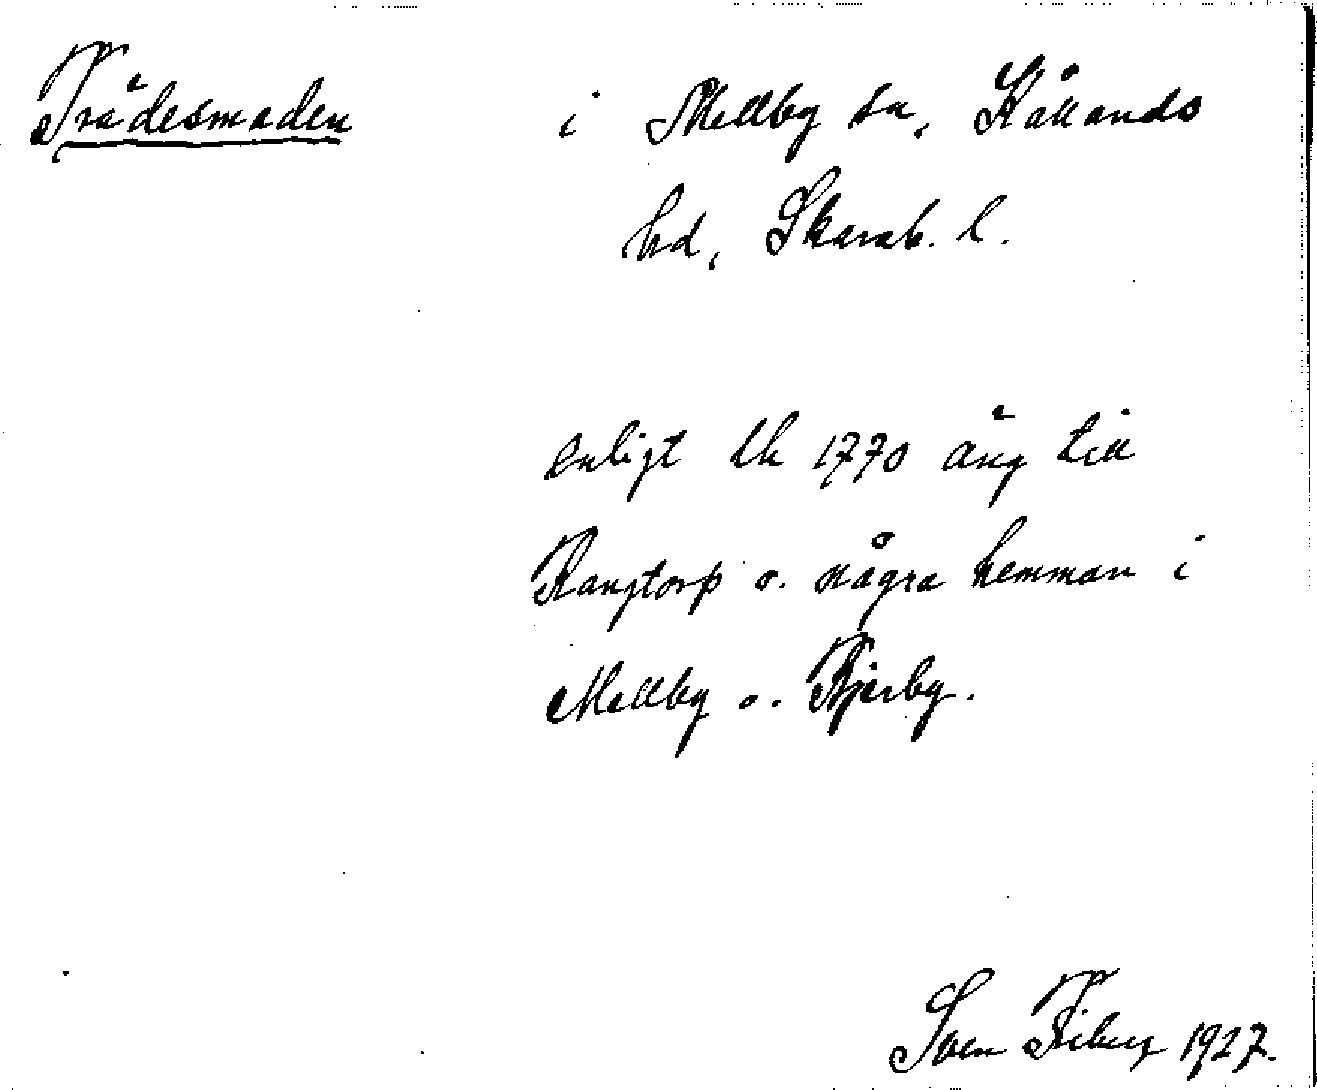 Trädesmaden i Mellby sn, Kållands
hd, Skarab. l.
enligt lk 1770 äng till
Rangtorp o. några hemman i
Mellby o. Bjerby.
Sven Fiberg 1927.